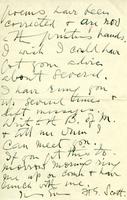 poems have been
corrected & are now
in the printers hands.
I wish I could have
got your advice
about several.
I have rung you
up several times &
left message
at B. of M.
& tell me when I
can meet you.
If you get this to-
morrow morning ring
me up or come & have
lunch with me.
F. G. Scott.